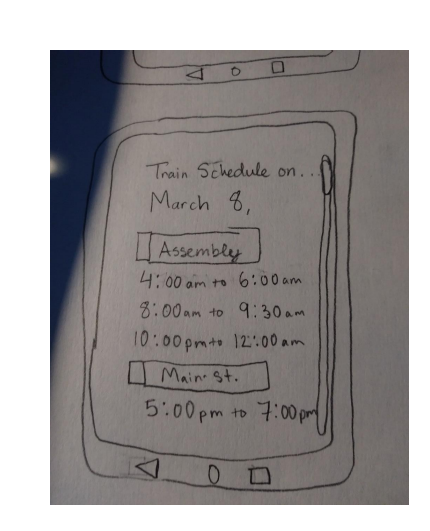 Train Schedule on...
March 8,
Assembly
4:00 am to 6:00 am
8:00 am to 9:30 am
10:00 pm to 12:00 am
Main St.
5:00 pm to 7:00 pm